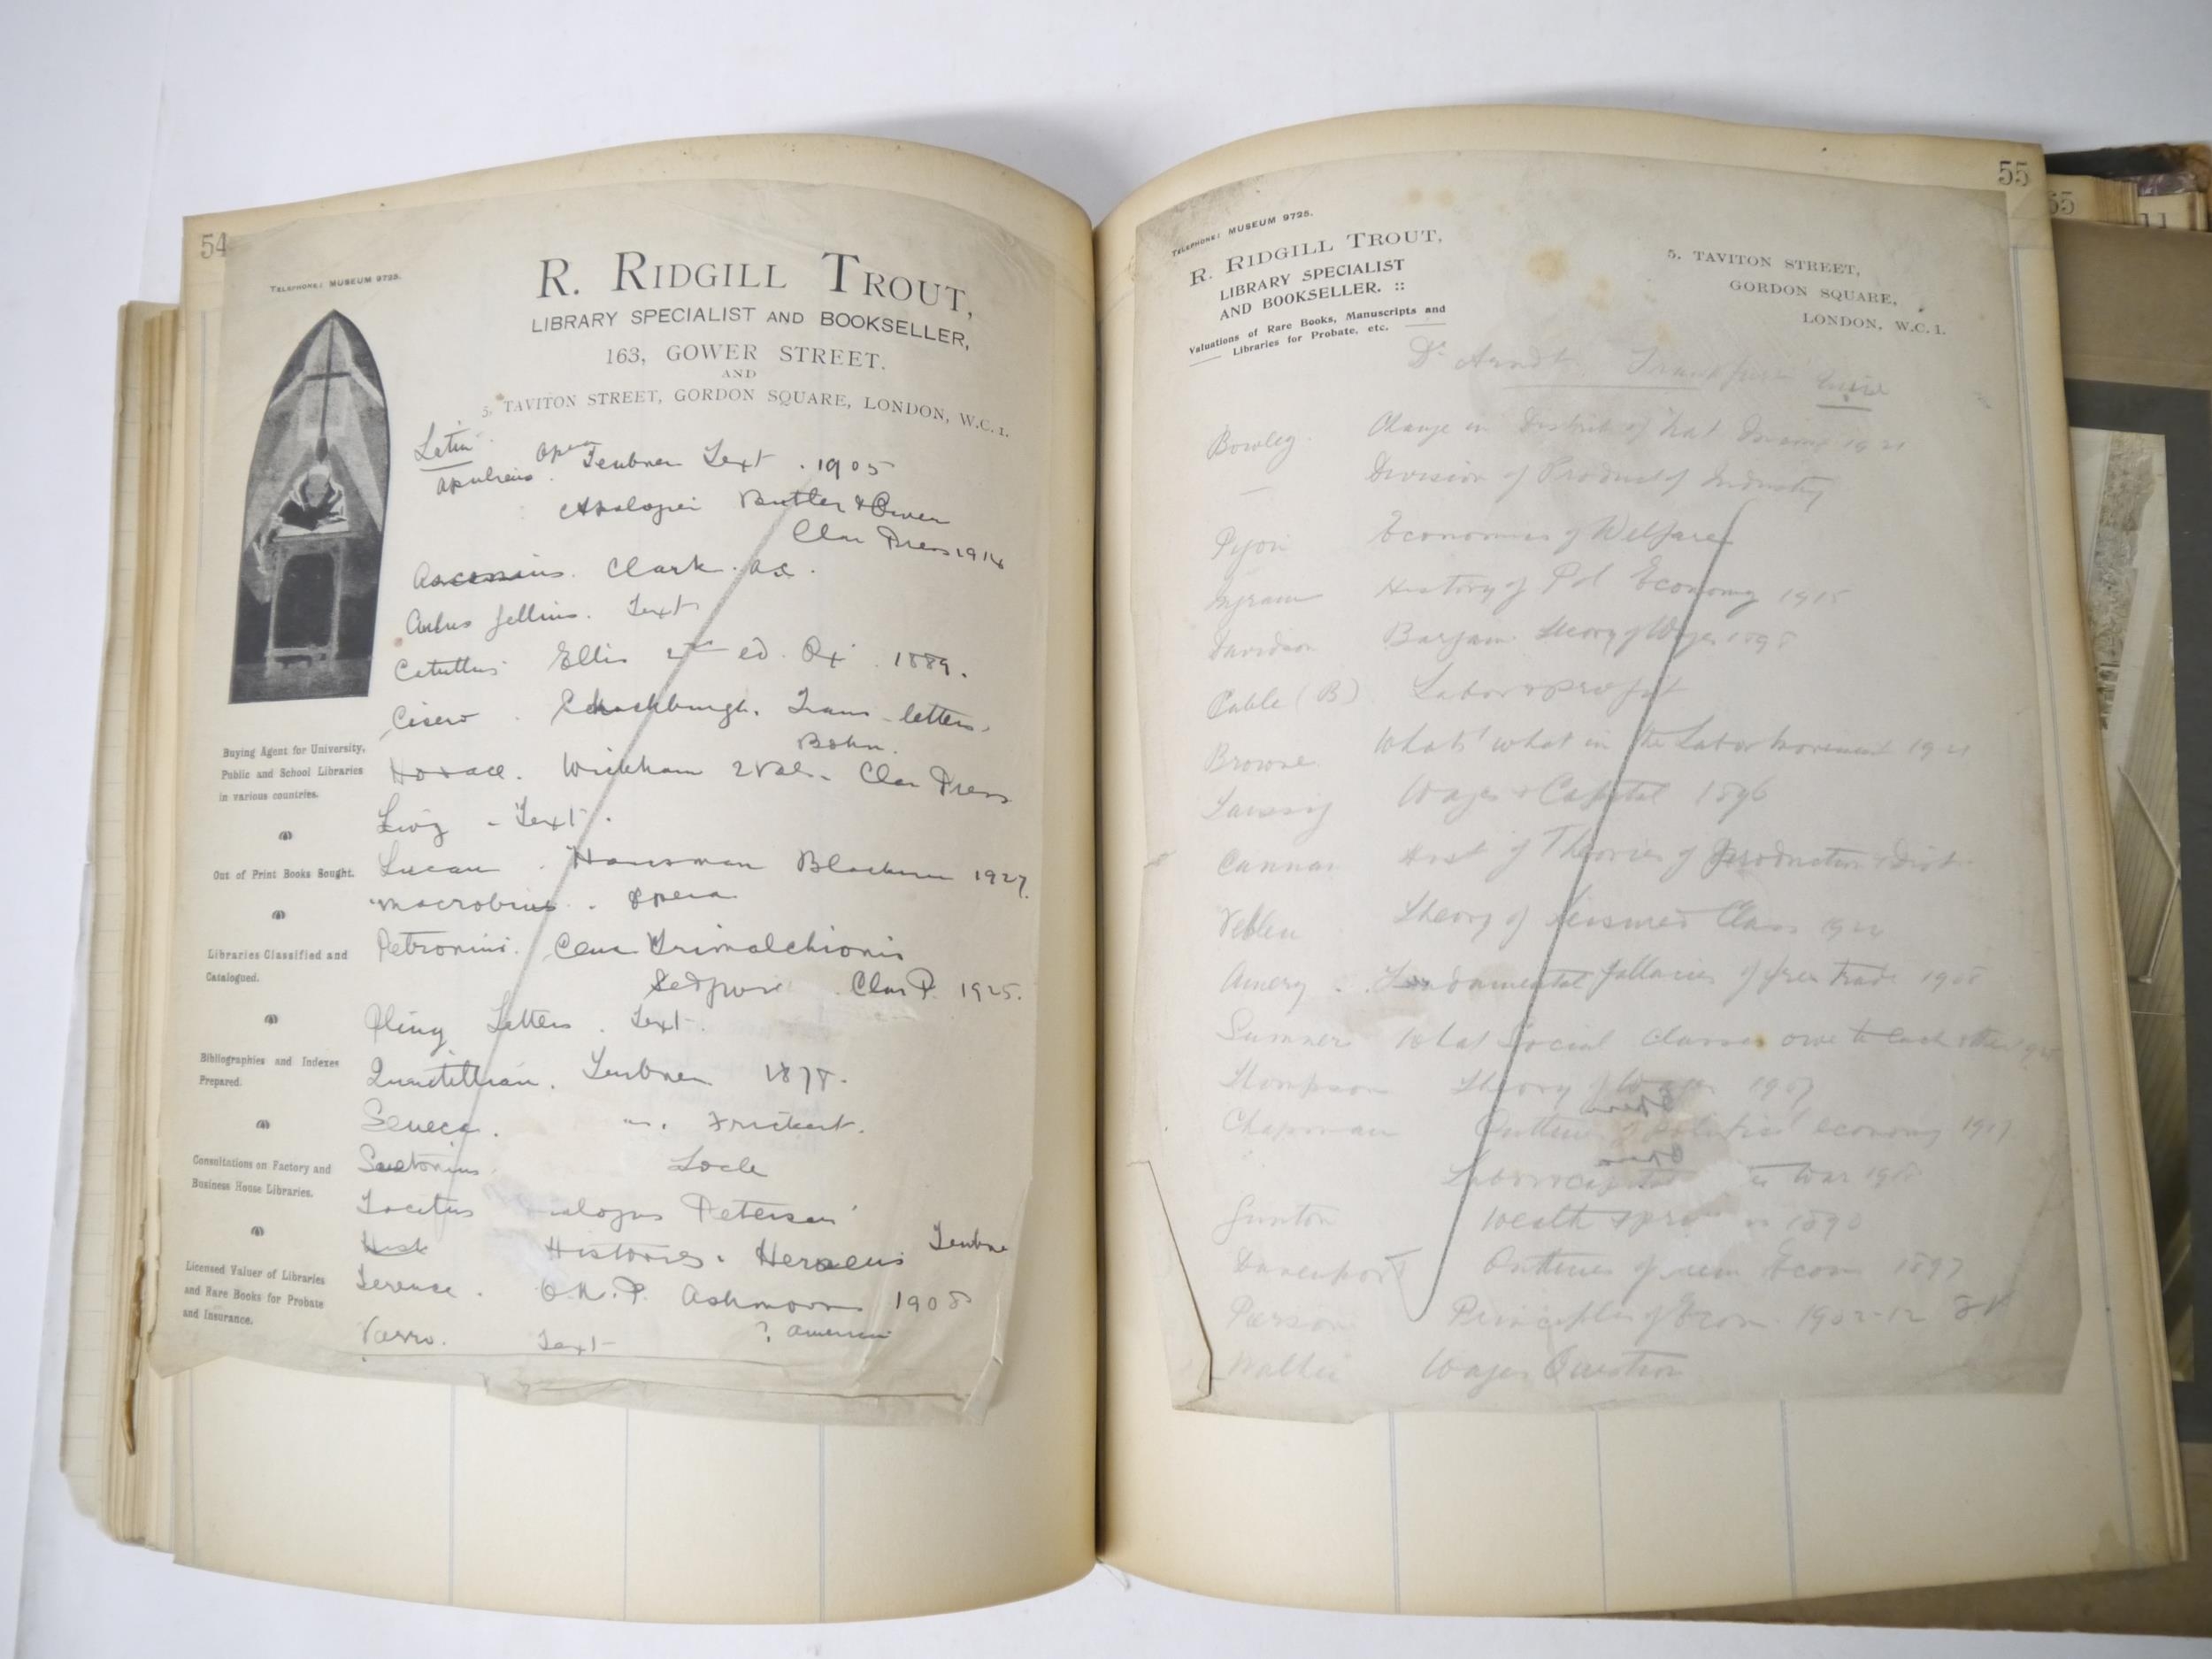 54
TELEPHONE: MUSEUM 9725.
R. RIDGILL TROUT,
LIBRARY SPECIALIST AND BOOKSELLER,
163, GOWER STREET.
AND
5, TAVITON STREET, GORDON SQUARE, LONDON, W.C.1.
Buying Agent for University,
Public and School Libraries
in various countries.
Out of Print Books Sought.
Libraries Classified and
Catalogued.
Bibliographies and Indexes
Prepared.
Consultations on Factory and
Business House Libraries.
Licensed Valuer of Libraries
and Rare Books for Probate
and Insurance.
Latin
Apuleius. Opera Teubner Text. 1905
Butler & Owen
Clar Press 1914
Clark. A.C.
Aulus Gellius. Text
Catullus Ellis 2nd ed. Ox. 1889.
Cicero. Trans letters.
Bohn.
Horace. Wickham 2 Vols. Clar Press
Livy - Text.
Lucan. Housman Blackwell 1927.
Macrobius. Opera
Petronius. Cena Trimalchionis
Clar P. 1925.
Pliny Letters. Text.
Quintillian. Teubner 1878.
Seneca.
Suetonius.
Tacitus Peterson
Hist Histories. Heraeus Teubner
Terence. Ashmore 1908
Varro. Text ? American
55
TELEPHONE: MUSEUM 9725.
R. RIDGILL TROUT,
LIBRARY SPECIALIST
AND BOOKSELLER. ::
Valuations of Rare Books, Manuscripts and
Libraries for Probate, etc.
5, TAVITON STREET,
GORDON SQUARE,
LONDON, W.C.1.
Dr Arndt. Frankfurt
Bowley. Change in Distrib of Nat Income 1921
Division of Product of Industry
Economics of Welfare
Ingram History of Pol Economy 1915
Davidson Bargain Theory of Wages 1898
(B) Labor & profit
Browne. What's what in the Labor Movement 1921
Taussig Wages & Capital 1896
Cannan Hist of Theories of production & Dist.
Veblen Theory of Leisured Class
Amery. Fundamental fallacies of free trade 1908
Sumner What Social Classes owe to each other
Thompson Theory of Wages 1907
Chapman Outlines of political economy 1917
War
Gunton Wealth 1890
Davenport Outlines of Econ 1897
Principles of Econ. 1902-12
Wages Question